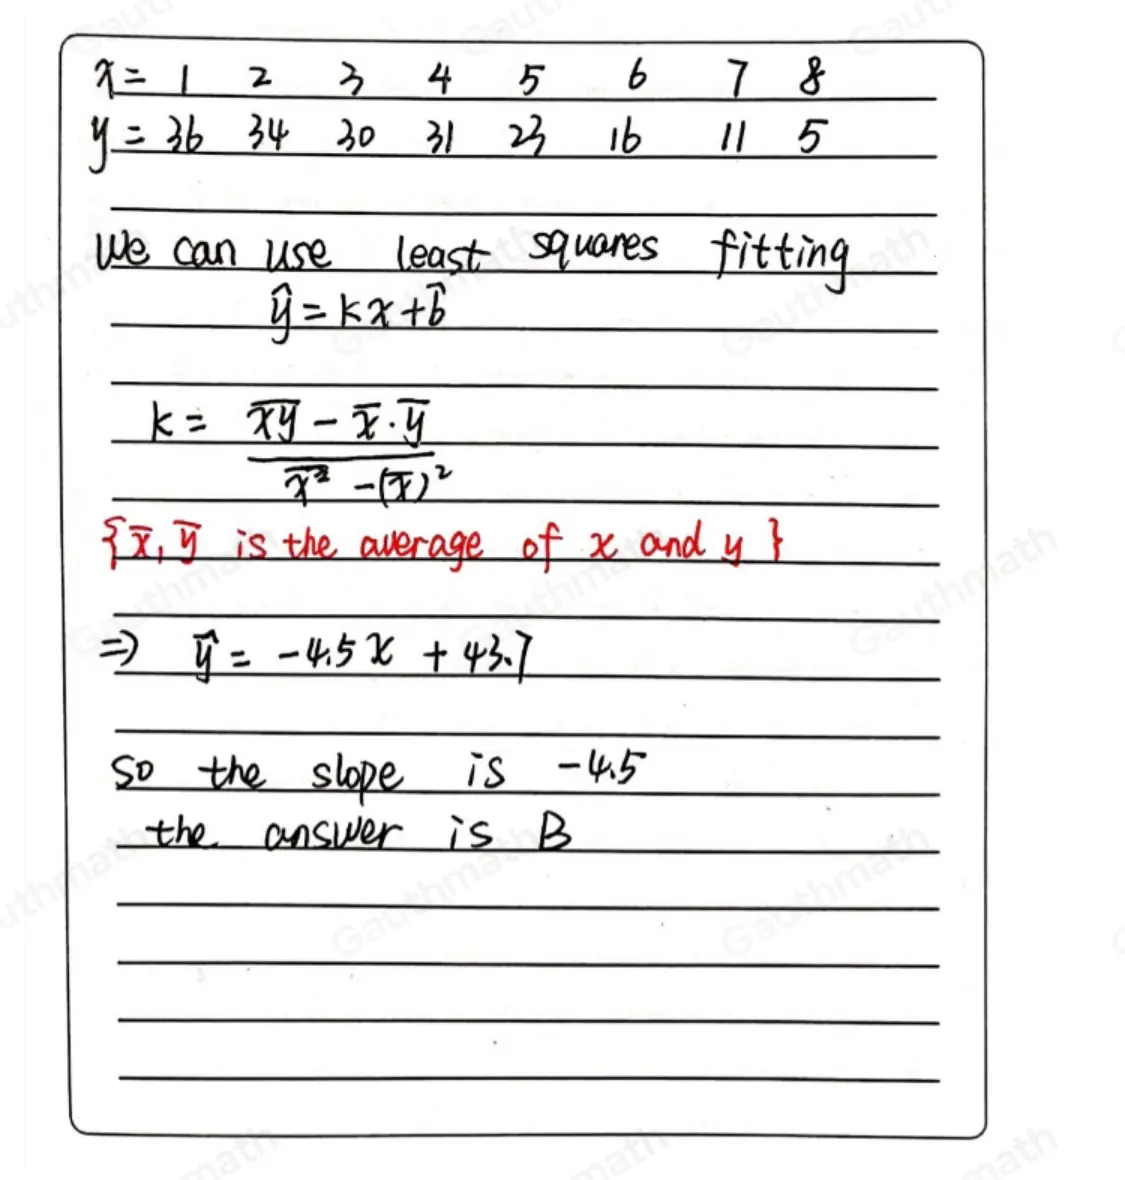 x = 1 2 3 4 5 6 7 8
y = 36 34 30 31 23 16 11 5
We can use least squares fitting
ŷ = kx + b̂
k = (x̅y̅ - x̅·y̅) / (x̅² - (x̅)²)
{x̅, y̅ is the average of x and y}
⇒ ŷ = -4.5x + 43.7
so the slope is -4.5
the answer is B
Gauthmath